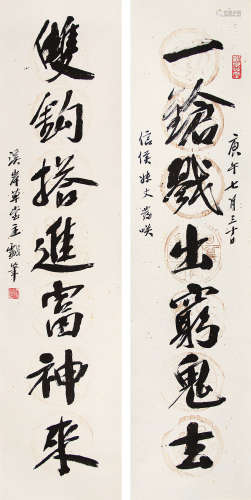 庚午七月三十日
一鎗戳出窮鬼去
信侯妹丈咲
雙鈎搭進富神來
溪岸草堂主戲筆